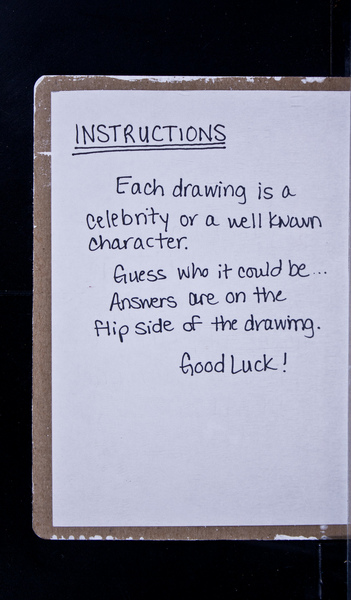 INSTRUCTIONS
Each drawing is a
celebrity or a well known
character.
Guess who it could be...
Answers are on the
flip side of the drawing.
Good Luck!